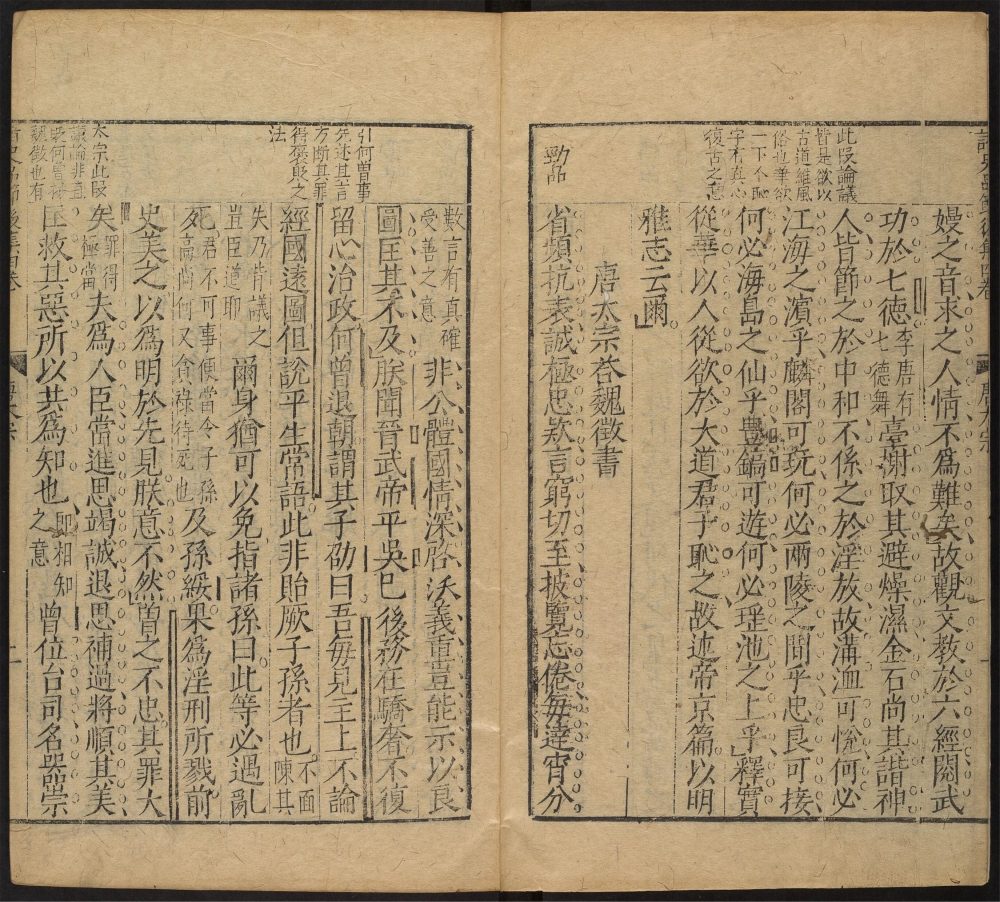 嫚之音求之人情不爲難矣故觀文教於六經閱武
功於七德李唐有七德舞臺榭取其避燥濕金石尚其諧神
人皆節之於中和不係之於淫放故溝洫可悅何必
江海之濱乎麟閣可玩何必兩陵之間乎忠良可接
何必海島之仙乎豊鎬可遊何必瑶池之上乎釋實
從華以人從欲於大道君子恥之故述帝京篇以明
雅志云爾
此段論議
皆是欲以
古道維風
俗也華欲
字有真心
復古之意
唐太宗答魏徵書
勁品
省頻抗表誠極忠欵言窮切至披覽忘倦每達宵分
數言有真確受善之意非公體國情深啓沃義重豈能示以良
圖匡其不及朕聞晉武帝平吳已後務在驕奢不復
留心治政何曾退朝謂其子劭曰吾每見主上不論
經國遠圖但說平生常語此非貽厥子孫者也不面陳其
失乃背議之豈臣道耶爾身猶可以免指諸孫曰此等必遇亂
死君不可事便當令子孫高尚何又貪祿待死也及孫綏果爲淫刑所戮前
史美之以爲明於先見朕意不然曾之不忠其罪大
矣罪得極當夫爲人臣當進思竭誠退思補過將順其美
匡救其惡所以共爲知也即相知之意曾位台司名器崇
引何曾事
先述其言
方斷其罪
得褒貶之
法
太宗此段
議論非直
魏徵也有